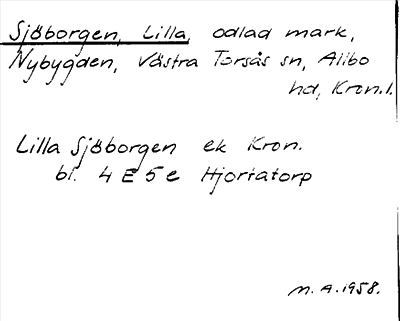 Sjöborgen, Lilla, odlad mark,
Nybygden, Västra Torsås sn, Allbo
hd, Kron.l.
Lilla Sjöborgen ek Kron.
bl. 4 E 5 e Hjortatorp
M.A. 1958.